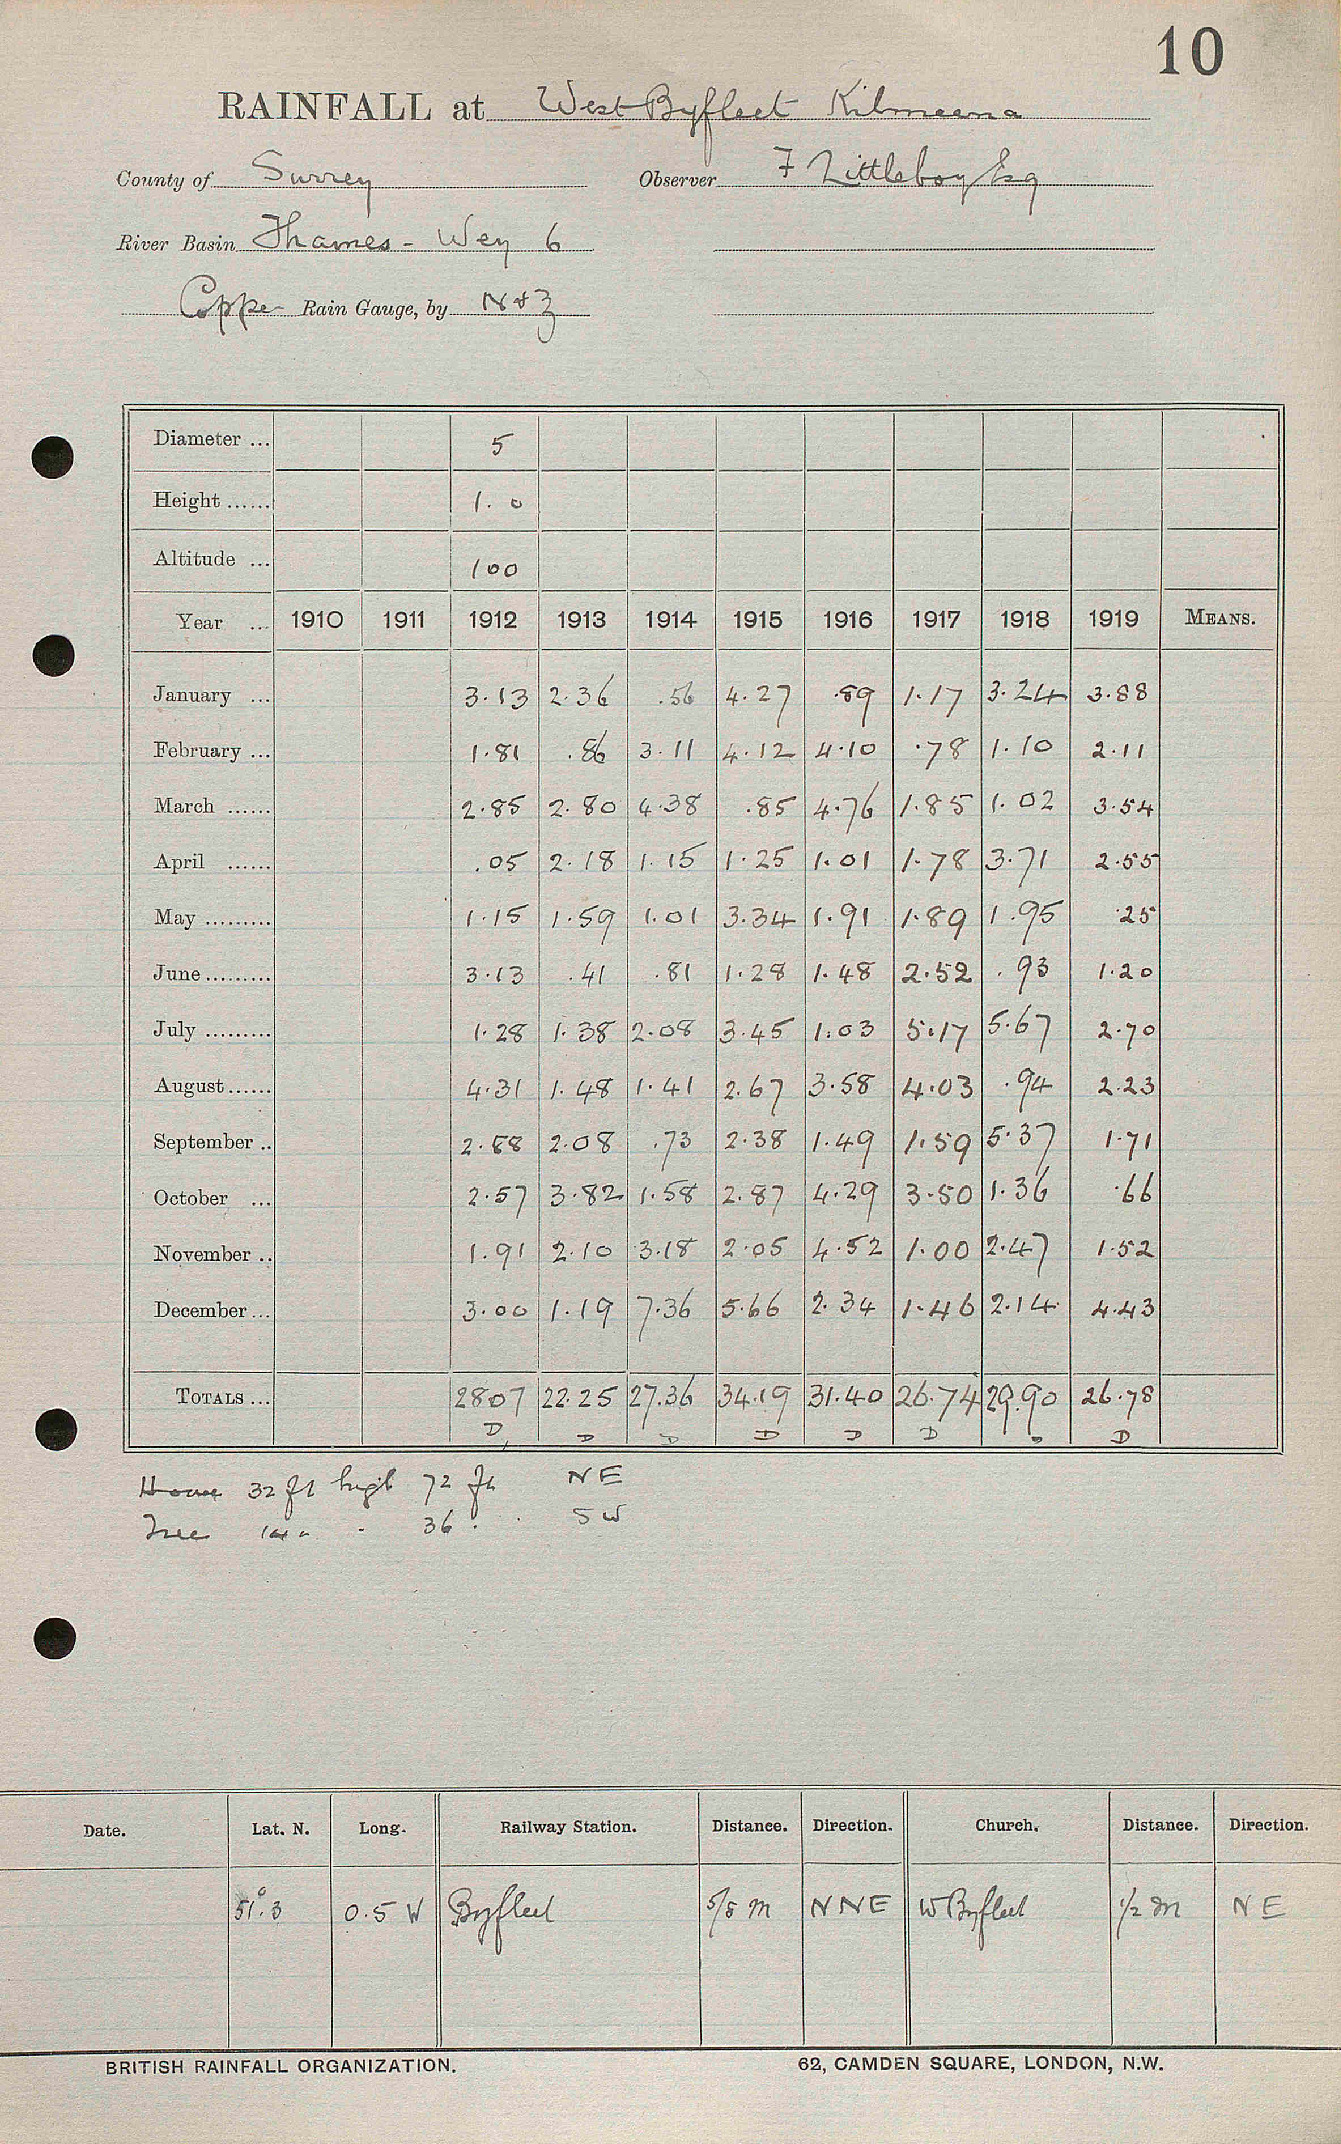 10
RAINFALL at West Byfleet Kilmeena
County of Surrey Observer F Littleboy Esq
River Basin Thames - Wey 6
Copper Rain Gauge, by N & Z
Diameter ... 5
Height ...... 1. 0
Altitude ... 100
Year ... 1910 1911 1912 1913 1914 1915 1916 1917 1918 1919 MEANS.
January ... 3.13 2.36 .56 4.27 .89 1.17 3.24 3.88
February ... 1.81 .86 3.11 4.12 4.10 .78 1.10 2.11
March ...... 2.85 2.80 4.38 .85 4.76 1.85 1.02 3.54
April ...... .05 2.18 1.15 1.25 1.01 1.78 3.71 2.55
May ......... 1.15 1.59 1.01 3.34 1.91 1.89 1.95 .25
June ......... 3.13 .41 .81 1.28 1.48 2.52 .93 1.20
July ......... 1.28 1.38 2.08 3.45 1.03 5.17 5.67 2.70
August ...... 4.31 1.48 1.41 2.67 3.58 4.03 .94 2.23
September .. 2.88 2.08 .73 2.38 1.49 1.59 5.37 1.71
October ... 2.57 3.82 1.58 2.87 4.29 3.50 1.36 .66
November .. 1.91 2.10 3.18 2.05 4.52 1.00 2.47 1.52
December ... 3.00 1.19 7.36 5.66 2.34 1.46 2.14 4.43
TOTALS ... 2807 22.25 27.36 34.19 31.40 26.74 29.90 26.78
D D D D D D D D
House 32 ft high 72 ft NE
Tree 14 " " 36 " SW
Date. Lat. N. Long. Railway Station. Distance. Direction. Church. Distance. Direction.
51°.3 0.5 W Byfleet 5/8 m NNE W Byfleet 1/2 m NE
BRITISH RAINFALL ORGANIZATION. 62, CAMDEN SQUARE, LONDON, N.W.